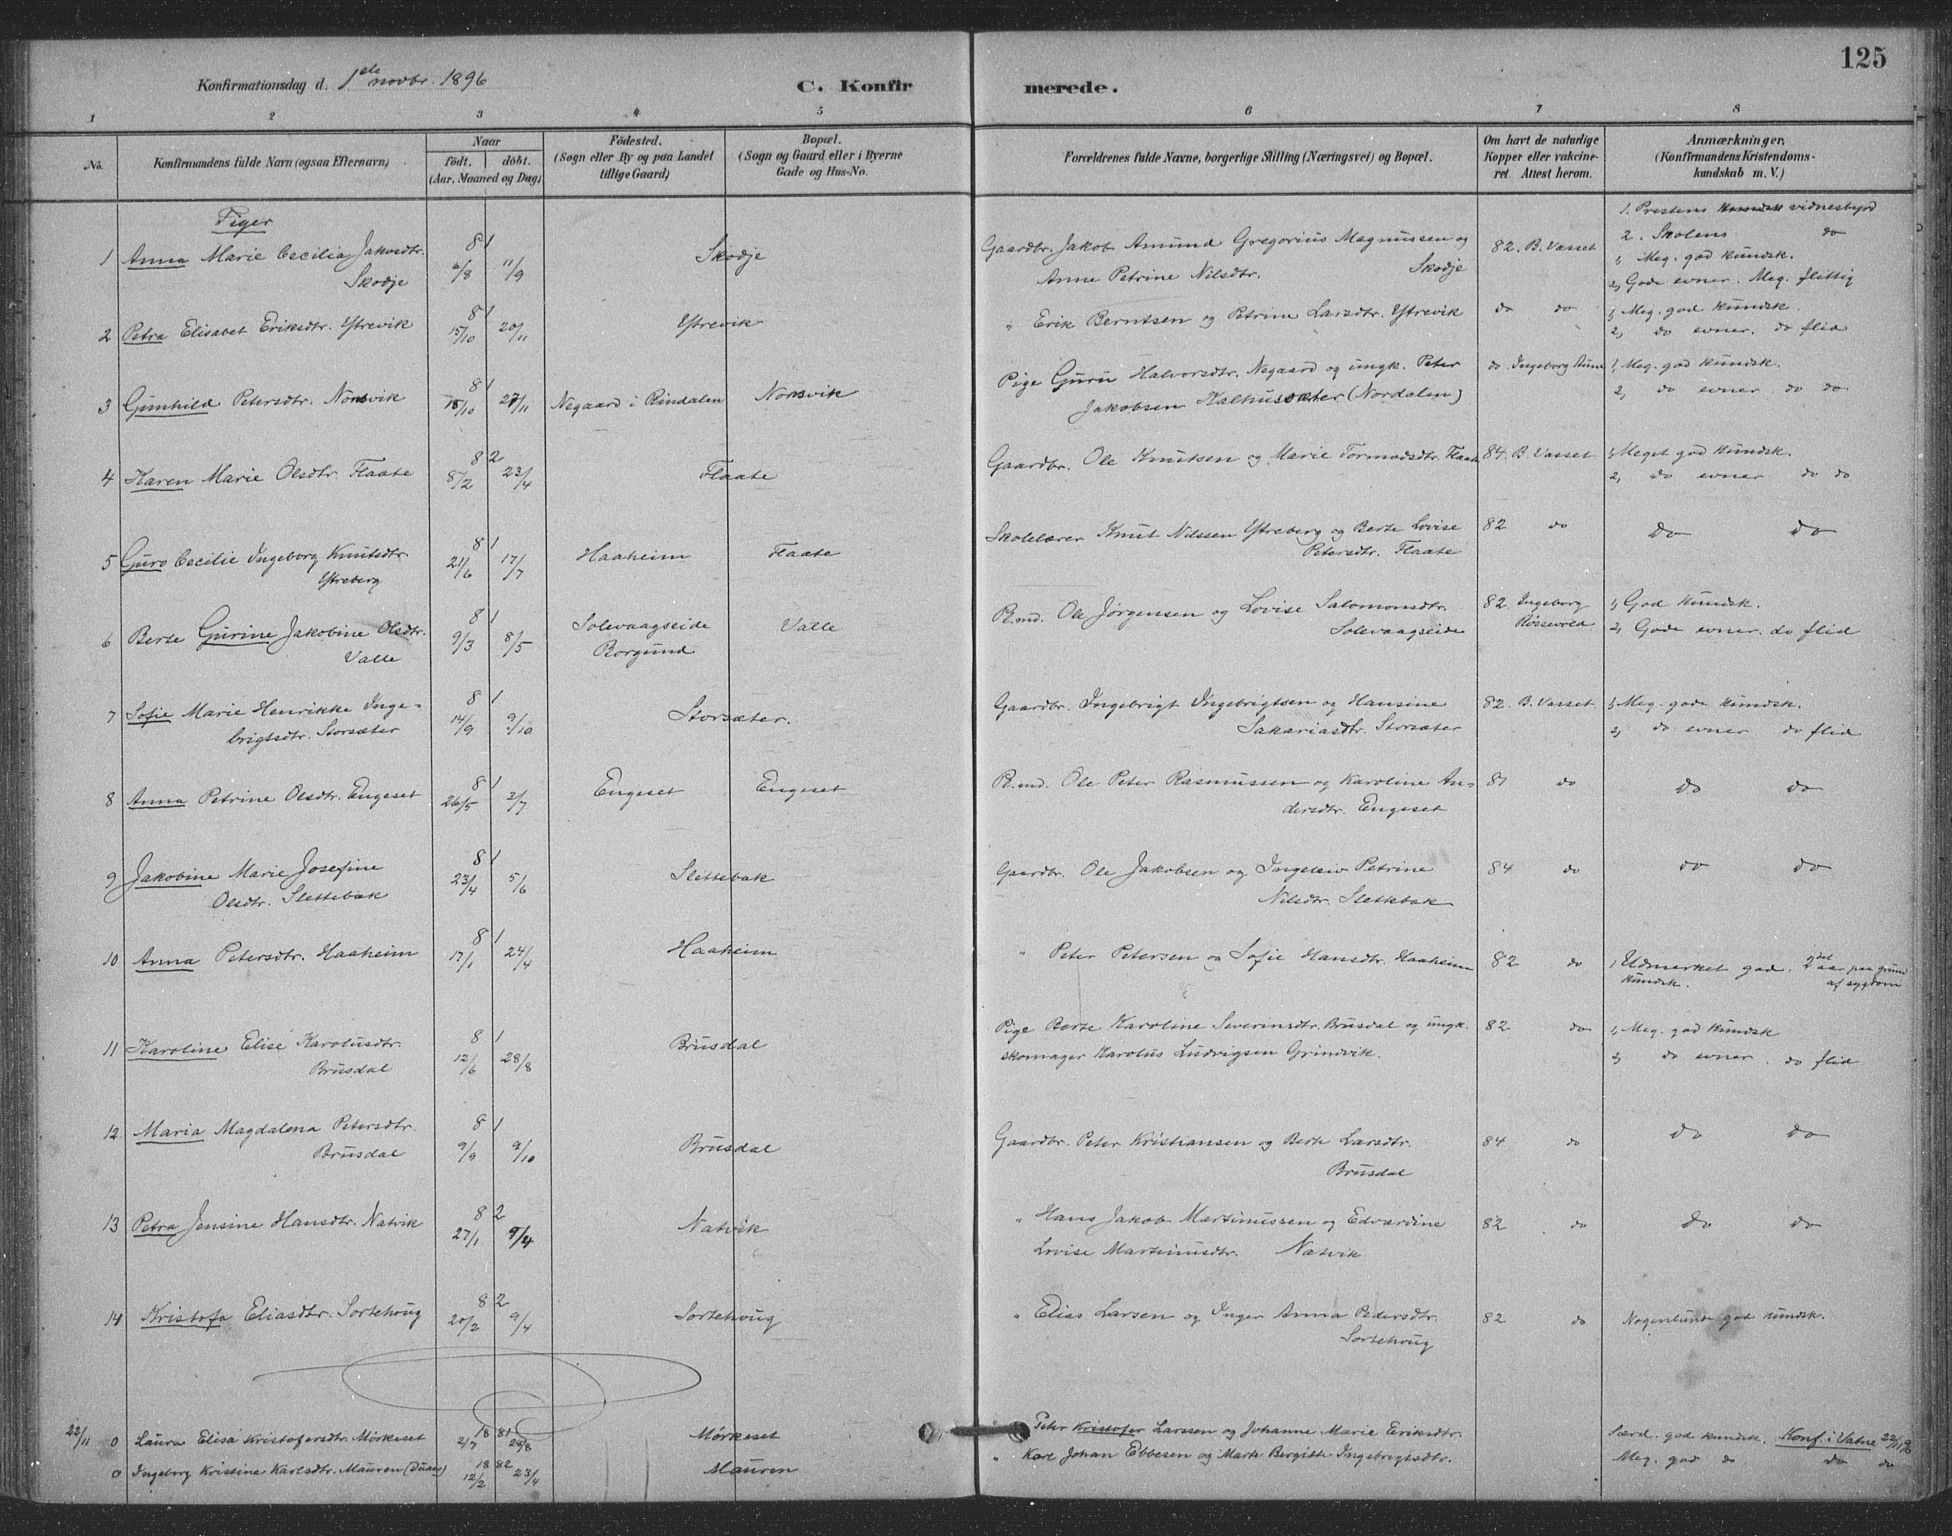 125
Konfirmationsdag d. 1ste novbr. 1896
C. Konfirmerede.
1 2 3 4 5 6 7 8
No.
Konfirmandens fulde Navn (ogsaa Efternavn)
Naar
födt. döbt.
(Aar, Maaned og Dag)
Födested.
(Sogn eller By og paa Landet
tillige Gaard)
Bopæl.
(Sogn og Gaard eller i Byerne
Gade og Hus-No.
Forældrenes fulde Navne, borgerlige Stilling (Næringsvei) og Bopæl.
Om havt de naturlige
Kopper eller vakcine-
ret. Attest herom.
Anmærkninger.
(Konfirmandens Kristendoms-
kundskab m. V.)
Piger
1. Prestens vidnesbyrd
2. Skolens do
1 Anna Marie Cecilia Jakobsdtr.
Skodje
81
6/8 11/9
Skodje
Gaardbr. Jakob Amund Gregorius Magnussen og
Anne Petrine Nilsdtr. Skodje
82. B. Vasset
1, Meg. god kundsk.
2, Gode evner. Meg. flittig
2 Petra Elisabet Eriksdtr. Ytrevik
81
15/10 20/11
Ytrevik
" Erik Berntsen og Petrine Larsdtr. Ytrevik
do do
1, Meg. god kundsk.
2, do evner. do flid
3 Gunhild Petersdtr. Norsvik
81
15/10 27/11
Negaard i Rindalen
Norsvik
Pige Guru Halvorsdtr. Negaard og ungk. Peter
Jakobsen Kalhussæter (Nordalen)
do. Ingeborg Aune
1, Meg. god kundsk.
2, do evner do do
4 Karen Marie Olsdtr. Flaate
82
8/2 23/4
Flaate
Gaardbr. Ole Knutsen og Marie Tormodsdtr. Flaate
84. B. Vasset
1, Meget god kundsk.
2, do evner do do
5 Guro Cecilie Ingeborg Knutsdtr.
Ytreberg
81
21/6 17/7
Haaheim
Flaate
Skolelærer Knut Nilssen Ytreberg og Berte Lovise
Petersdtr. Flaate
82 do
do do
6 Berte Gurine Jakobine Olsdtr.
Valle
81
9/3 8/5
Solevaagseide
Borgund
Valle
Pl.md. Ole Jørgensen og Lovise Salomonsdtr.
Solevaagseide
82. Ingeborg
Røisevold
1, God kundsk.
2, Gode evner. do flid
7 Sofie Marie Henrikke Inge-
brigtsdtr. Storsæter
81
14/9 9/10
Storsæter.
Gaardbr. Ingebrigt Ingebrigtsen og Hansine
Sakariasdtr. Storsæter
82. B. Vasset
1, Meg. gode kundsk.
2, do evner do flid
8 Anna Petrine Olsdtr. Engeset
81
26/5 3/7
Engeset
Engeset
Pl.md. Ole Peter Rasmussen og Karoline An-
dersdtr. Engeset
81 do
do do
9 Jakobine Marie Josefine
Olsdtr. Slettebak
81
23/4 5/6
Slettebak
Gaardbr. Ole Jakobsen og Ingeleiv Petrine
Nilsdtr. Slettebak
84 do
do do
10 Anna Petersdtr. Haaheim
81
17/1 24/4
Haaheim
" Peter Petersen og Sofie Hansdtr. Haaheim
82 do
1, Udmerket god.
kundsk.
2det aar paa grund
af sygdom
11 Karoline Elise Karolusdtr.
Brusdal
81
12/6 28/8
Brusdal
Pige Berte Karoline Severinsdtr. Brusdal og ungk.
skomager Karolus Ludvigsen Grindvik.
82 do
1, Meg. god kundsk
2, do evner. do flid
12 Maria Magdalena Petersdtr.
Brusdal
81
9/9 9/10
Brusdal
Gaardbr. Peter Kristiansen og Berte Larsdtr.
Brusdal
84 do
do do
13 Petra Jensine Hansdtr. Natvik
82
27/1 9/4
Natvik
" Hans Jakob Martinussen og Edvardine
Lovise Martinusdtr. Natvik
82 do
do do
14 Kristofa Eliasdtr. Sortehoug
82
20/2 9/4
Sortehoug
" Elias Larsen og Inger Anna Pedersdtr.
Sortehoug
82 do
Nogenlunde god kundsk.
22/11 0 Laura Elisa Kristofersdtr. Mørkeset
18 81
2/7 28/8
Mørkeset
" Peter Kristofer Larssen og Johanne Marie Eriksdtr.
Særd. god kundsk. Konf. i Vatne 22/11 96
0 Ingeborg Kristine Karlsdtr. Mauren
18 82
12/2 23/4
Mauren
" Karl Johan Ebbesen og Marte Bergithe Ingebregtsdtr.
Meg. god do do do